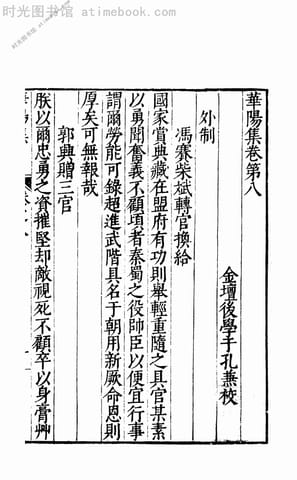 时光图书馆 - atimebook.com
華陽集卷第八
金壇後學于孔兼校
外制
馮賽柴斌轉官換給
國家賞典藏在盟府有功則舉輕重隨之具官某素
以勇聞奮義不顧項者秦蜀之役帥臣以便宜行事
謂爾勞能可錄超進武階具名于朝用新厥命恩則
厚矣可無報哉
郭興贈三官
朕以爾忠勇之資摧堅却敵視死不顧卒以身膏艸